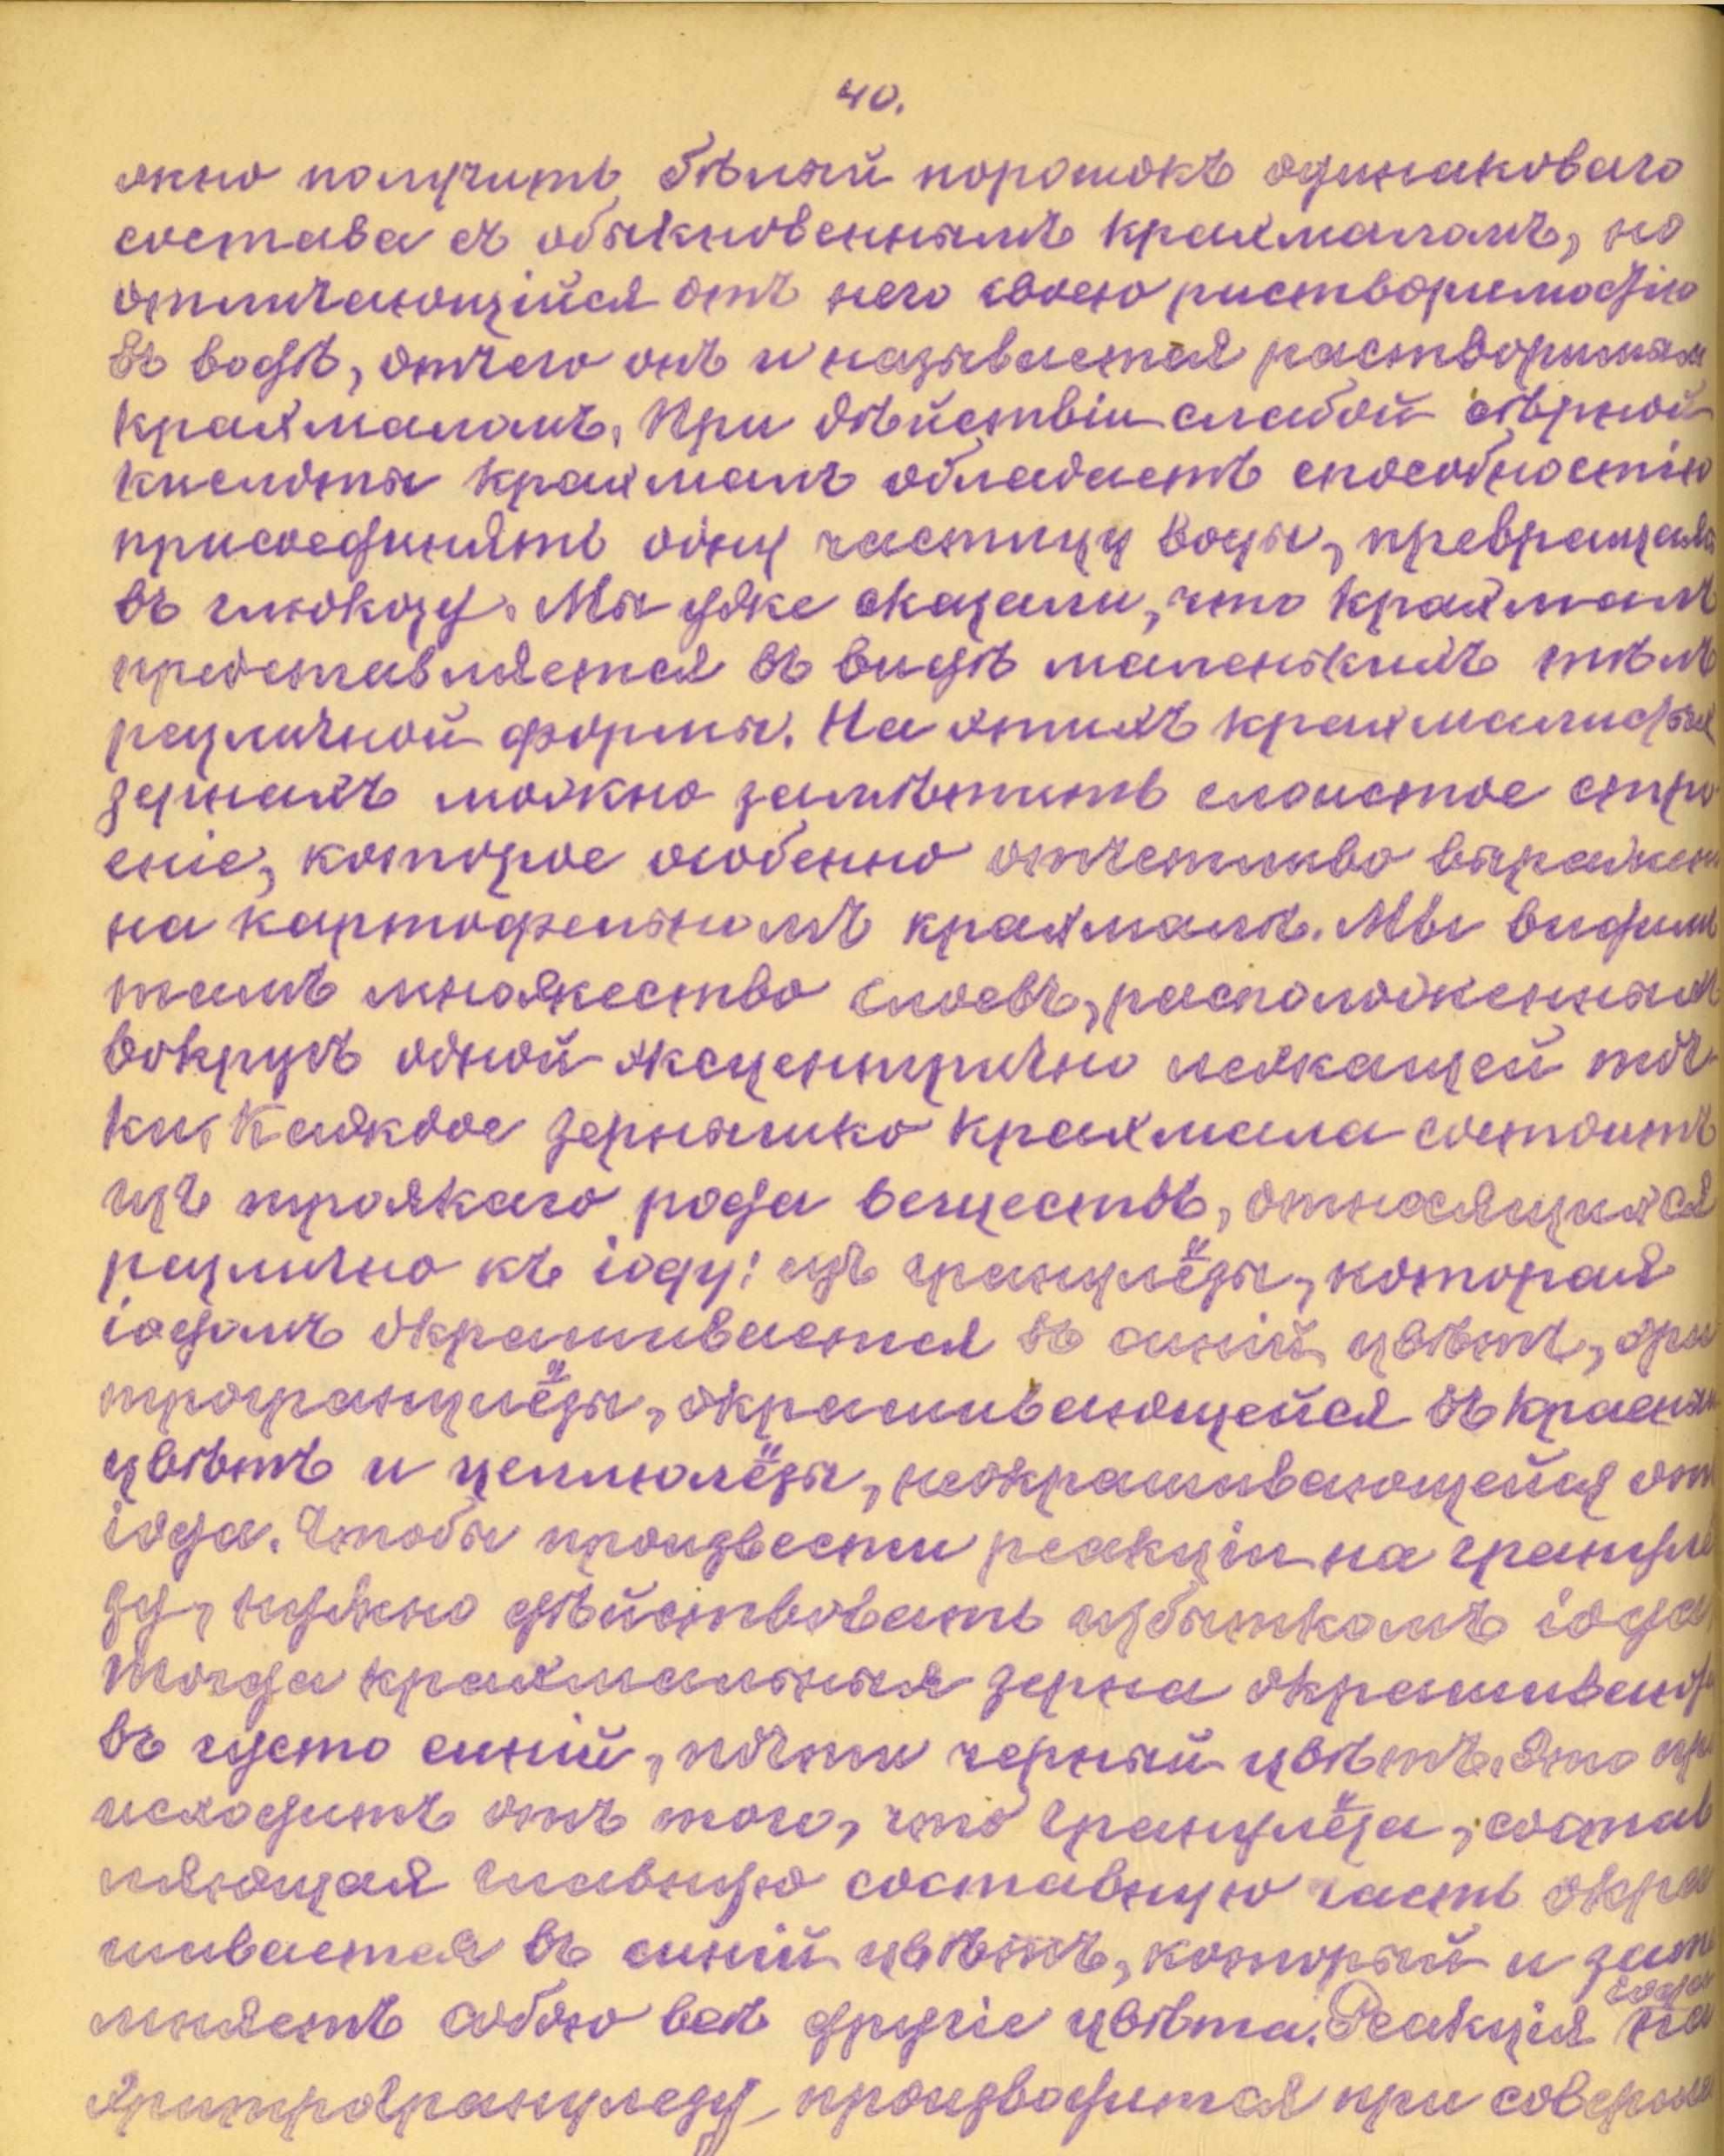 40.
ожно получить бѣлый порошокъ одинаковаго
состава съ обыкновеннымъ крахмаломъ, но
отличающійся отъ него своею растворимостію
въ водѣ, отчего онъ и называется растворимым
крахмаломъ. При дѣйствіи слабой сѣрной
кислоты крахмалъ обладаетъ способностію
присоединять одну частицу воды, превращаясь
въ глюкозу. Мы уже сказали, что крахмалъ
представляется въ видѣ маленькихъ тѣлъ
различной формы. На этихъ крахмалистых
зернахъ можно замѣтить слоистое стро
еніе, которое особенно отчетливо выражен
на картофельномъ крахмалѣ. Мы видимъ
тамъ множество слоевъ, расположенныхъ
вокругъ одной эксцентрично лежащей точ-
ки. Каждое зернышко крахмала состоитъ
изъ троякаго рода веществъ, относящихся
различно къ іоду: изъ гранулёзы, которая
іодомъ окрашивается въ синій цвѣтъ, эри
трогранулёзы, окрашивающейся въ красны
цвѣтъ и целлюлёзы, неокрашивающейся от
іода. Чтобы произвести реакцію на гранулё
зу, нужно дѣйствовать избыткомъ іода,
тогда крахмальныя зерна окрашивают
въ густо синій, почти черный цвѣтъ. Это про
исходитъ отъ того, что гранулёза, состав
ляющая главную составную часть окра
шивается въ синій цвѣтъ, который и затем
мняетъ собою всѣ другіе цвѣта. Реакція іода на
эритрогранулезу производится при соверше